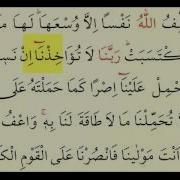 فُ اللّٰهُ نَفْسًا اِلَّا وُسْعَهَا ؕ لَهَا مَا
كْتَسَبَتْ ؕ رَبَّنَا لَا تُؤَاخِذْنَاۤ اِنْ نَسِ
حْمِلْ عَلَيْنَاۤ اِصْرًا كَمَا حَمَلْتَهٗ عَ
تُحَمِّلْنَا مَا لَا طَاقَةَ لَنَا بِهٖ ۚ وَاعْفُ
اَنْتَ مَوْلٰىنَا فَانْصُرْنَا عَلَى الْقَوْمِ الْكٰ